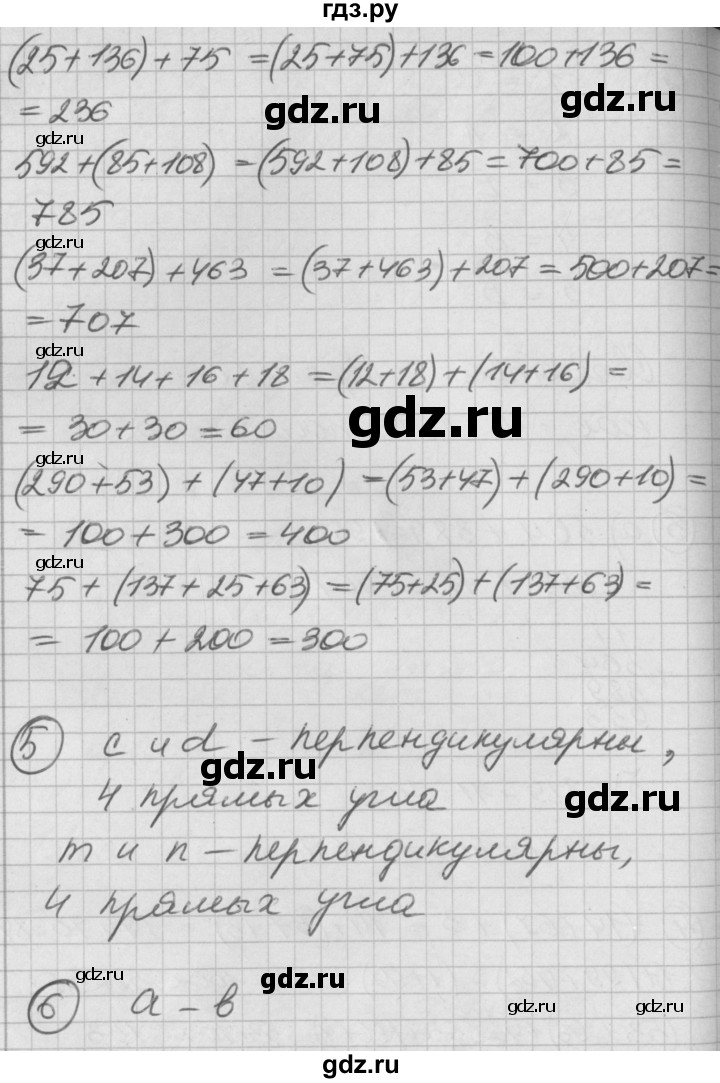 гдз.ру
(25+136)+75 =(25+75)+136=100+136=
=236
gdz.ru
gdz.ru
gdz.ru
592+(85+108) =(592+108)+85=700+85=
785
gdz.ru
(37+207)+463 =(37+463)+207=500+207=
=707
gdz.ru
12+14+16+18 =(12+18)+(14+16)=
=30+30=60
gdz.ru
gdz.ru
(290+53)+(47+10) =(53+47)+(290+10)=
=100+300=400
gdz.ru
75+(137+25+63) =(75+25)+(137+63)=
=100+200=300
5 c и d – перпендикулярны,
gdz.ru
4 прямых угла
gdz.ru
m и n – перпендикулярны,
4 прямых угла
gdz.ru
gdz.ru
6 а – в
gdz.ru
gdz.ru
gdz.ru